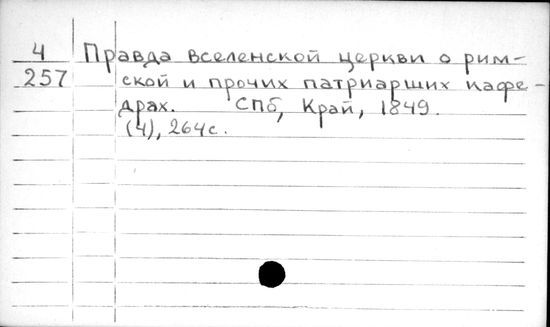 4 Правда вселенской церкви о рим-
257 ской и прочих патриарших кафе-
драх. СПб, Край, 1849.
(4), 264 с.